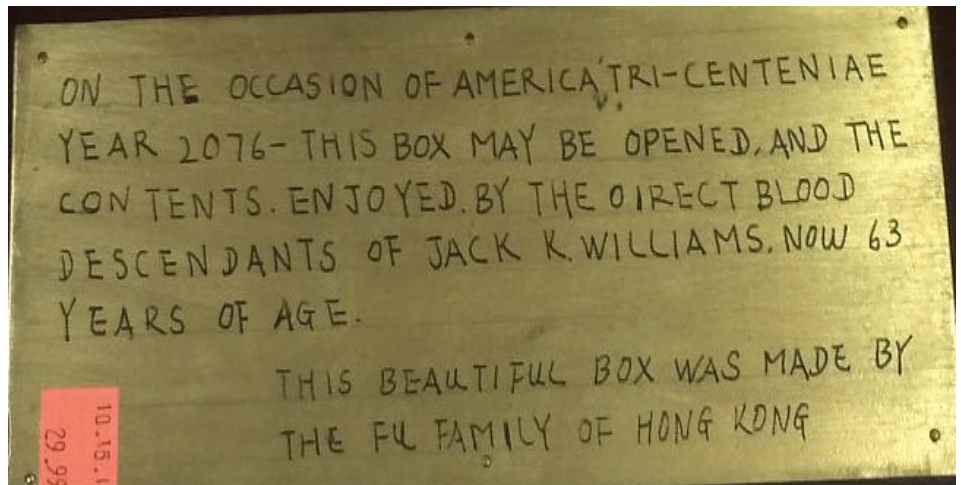 ON THE OCCASION OF AMERICA'TRI-CENTENIAE
YEAR 2076- THIS BOX MAY BE OPENED, AND THE
CONTENTS. ENJOYED. BY THE OIRECT BLOOD
DESCENDANTS OF JACK K. WILLIAMS. NOW 63
YEARS OF AGE.
THIS BEAUTIFUL BOX WAS MADE BY
THE FU FAMILY OF HONG KONG
10.15.1
29.99